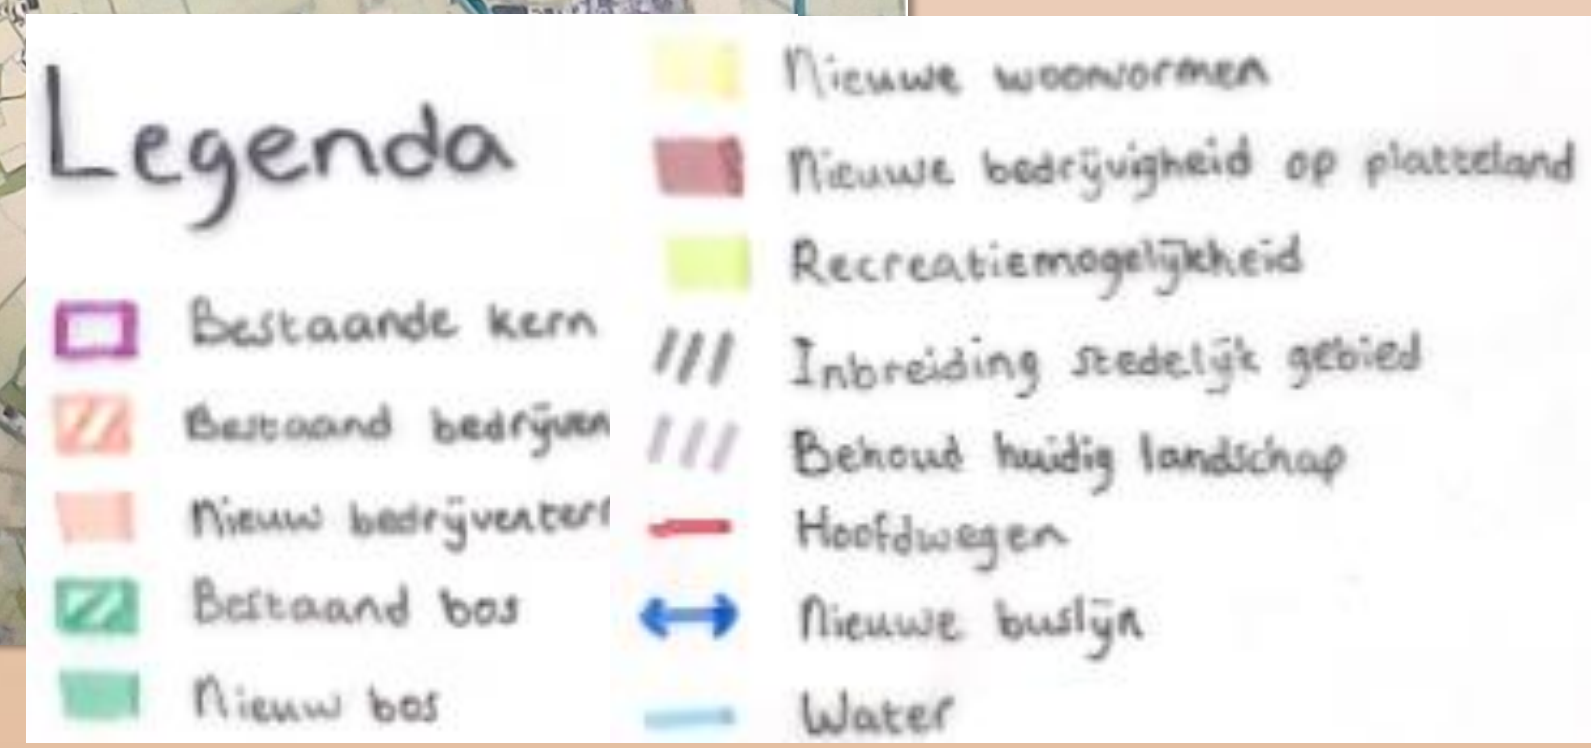 Legenda
Bestaande kern
Bestaand bedrijven
Nieuw bedrijventerr
Bestaand bos
Nieuw bos
Nieuwe woonvormen
Nieuwe bedrijvigheid op platteland
Recreatiemogelijkheid
Inbreiding stedelijk gebied
Behoud huidig landschap
Hoofdwegen
Nieuwe buslijn
Water